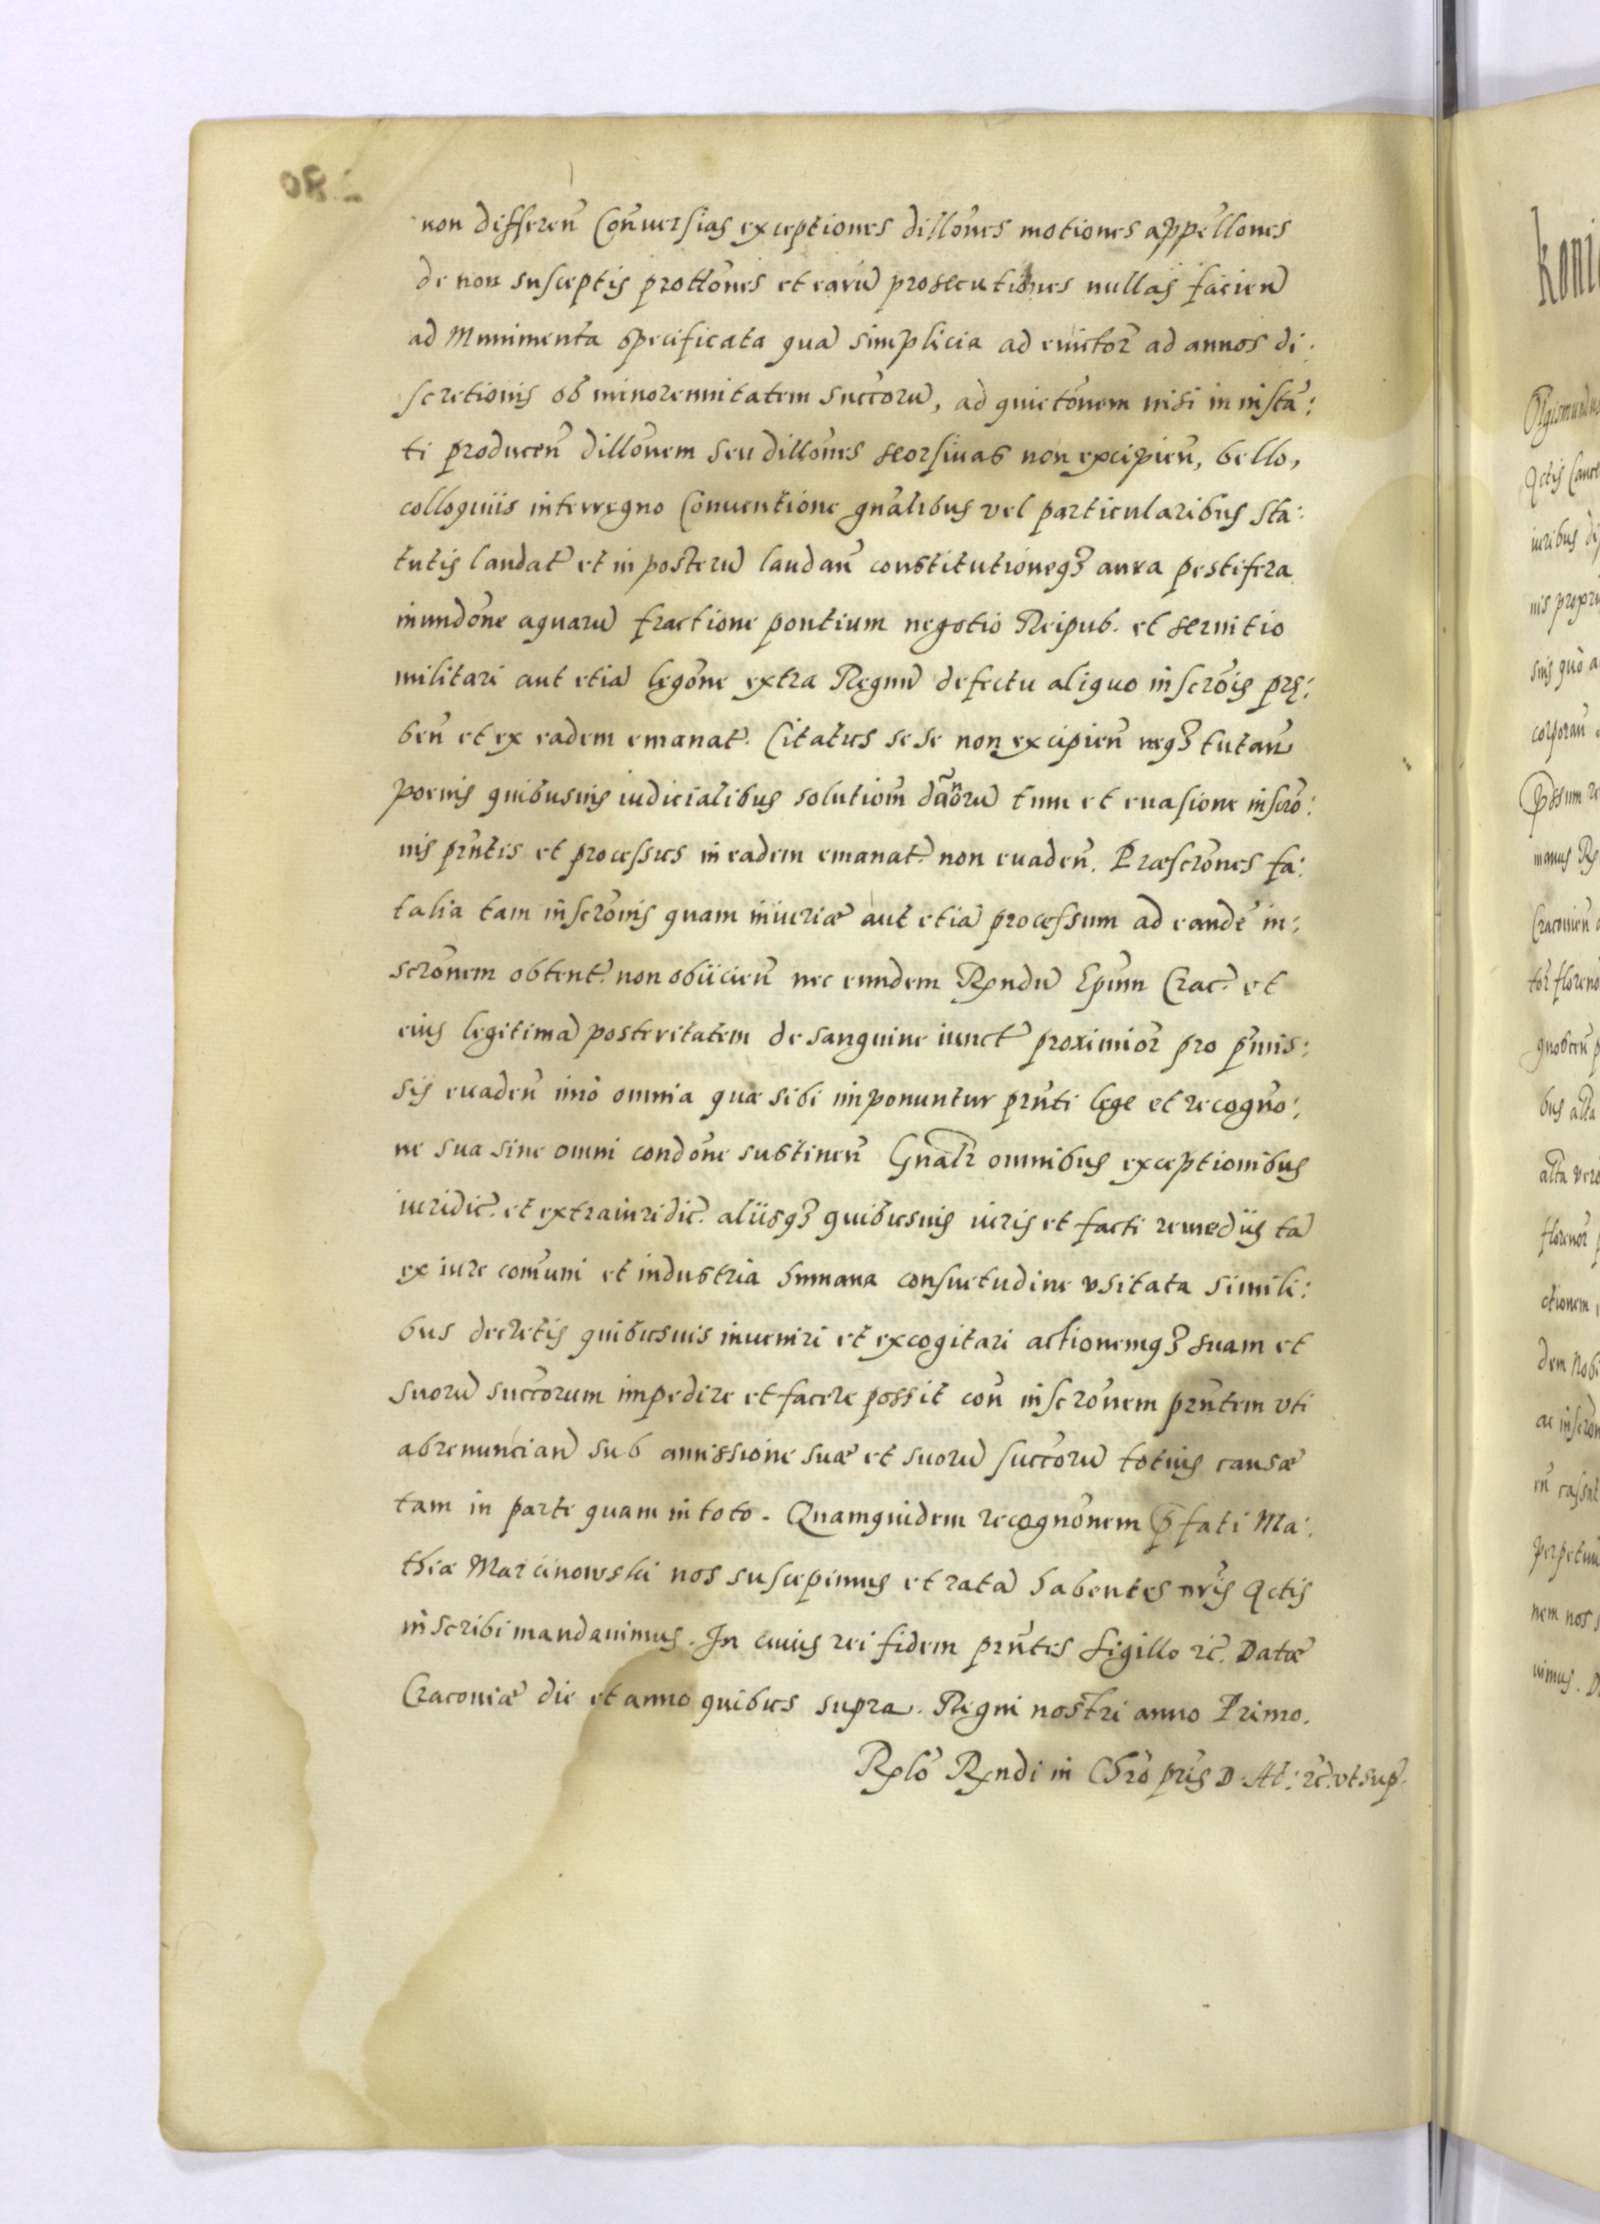 non differeñ Coñuersias exceptiones dillões motiones appellones
de non susceptis prottões et earũ prosecutiones nullas facieñ
ad Munimenta specificata quã simplicia ad euictor̃ ad annos di:
scretionis ob minorennitatem succorũ, ad quietõnem nisi in instã:
ti produceñ dillõnem seu dillões seorsiuas non excipieñ, bello,
colloquiis interregno Conuentione gñalibus vel particularibus sta:
tutis laudat̃ et in posterũ laudañ constitutioneqꝫ aura pestifera
inundõne aquarũ fractione pontium negotio Reipub. et seruitio
militari aut etiã legõne extra Regnũ defectu aliquo inscrõis prę:
beñ et ex eadem emanat̃. Citatus sese non excipieñ neqꝫ tutañ
poenis quibusuis iudicialibus solutioñ dañorũ tum et euasione inscrõ:
nis prñtis et processus in eadem emanat̃. non euadeñ. Præscrõnes fa:
talia tam inscrõnis quam iniuriæ aut etiã processum ad eandẽ in:
scrõnem obtent̃. non obiicieñ nec eundem Rxndũ Epũm Crac̃. et
eius legitimã posteritatem de sanguine iunct̃ proximior̃ pro p̃mis:
sis euadeñ imò omnia quæ sibi imponuntur prñti lege et recognõ:
ne sua sine omni condõne sustineñ Gñalr̃ omnibus exceptionibus
iuridic̃. et extraiuridic̃. aliisqꝫ quibusuis iuris et facti remediis tã
ex iure com̃uni et industria humana consuetudine vsitata simili:
bus decretis quibusuis inueniri et excogitari actionemqꝫ suam et
suorũ succorum impedire et facere possit coñ inscrõnem prñtem vti
abrenunciañ sub amissione suæ et suorũ succorũ totius causæ
tam in parte quam in toto. Quamquidem recognõnem p̃fati Ma:
thiæ Marcinowski nos suscepimus et ratã habentes nr̃is Actis
inscribi mandauimus. In cuius rei fidem prñtes Sigillo rc̃. Datæ
Cracouiæ die et anno quibus supra. Regni nostri anno Primo.
Rxlõ Rxndi in Chrõ pr̃is D. At: rc̃. vt sup̃.